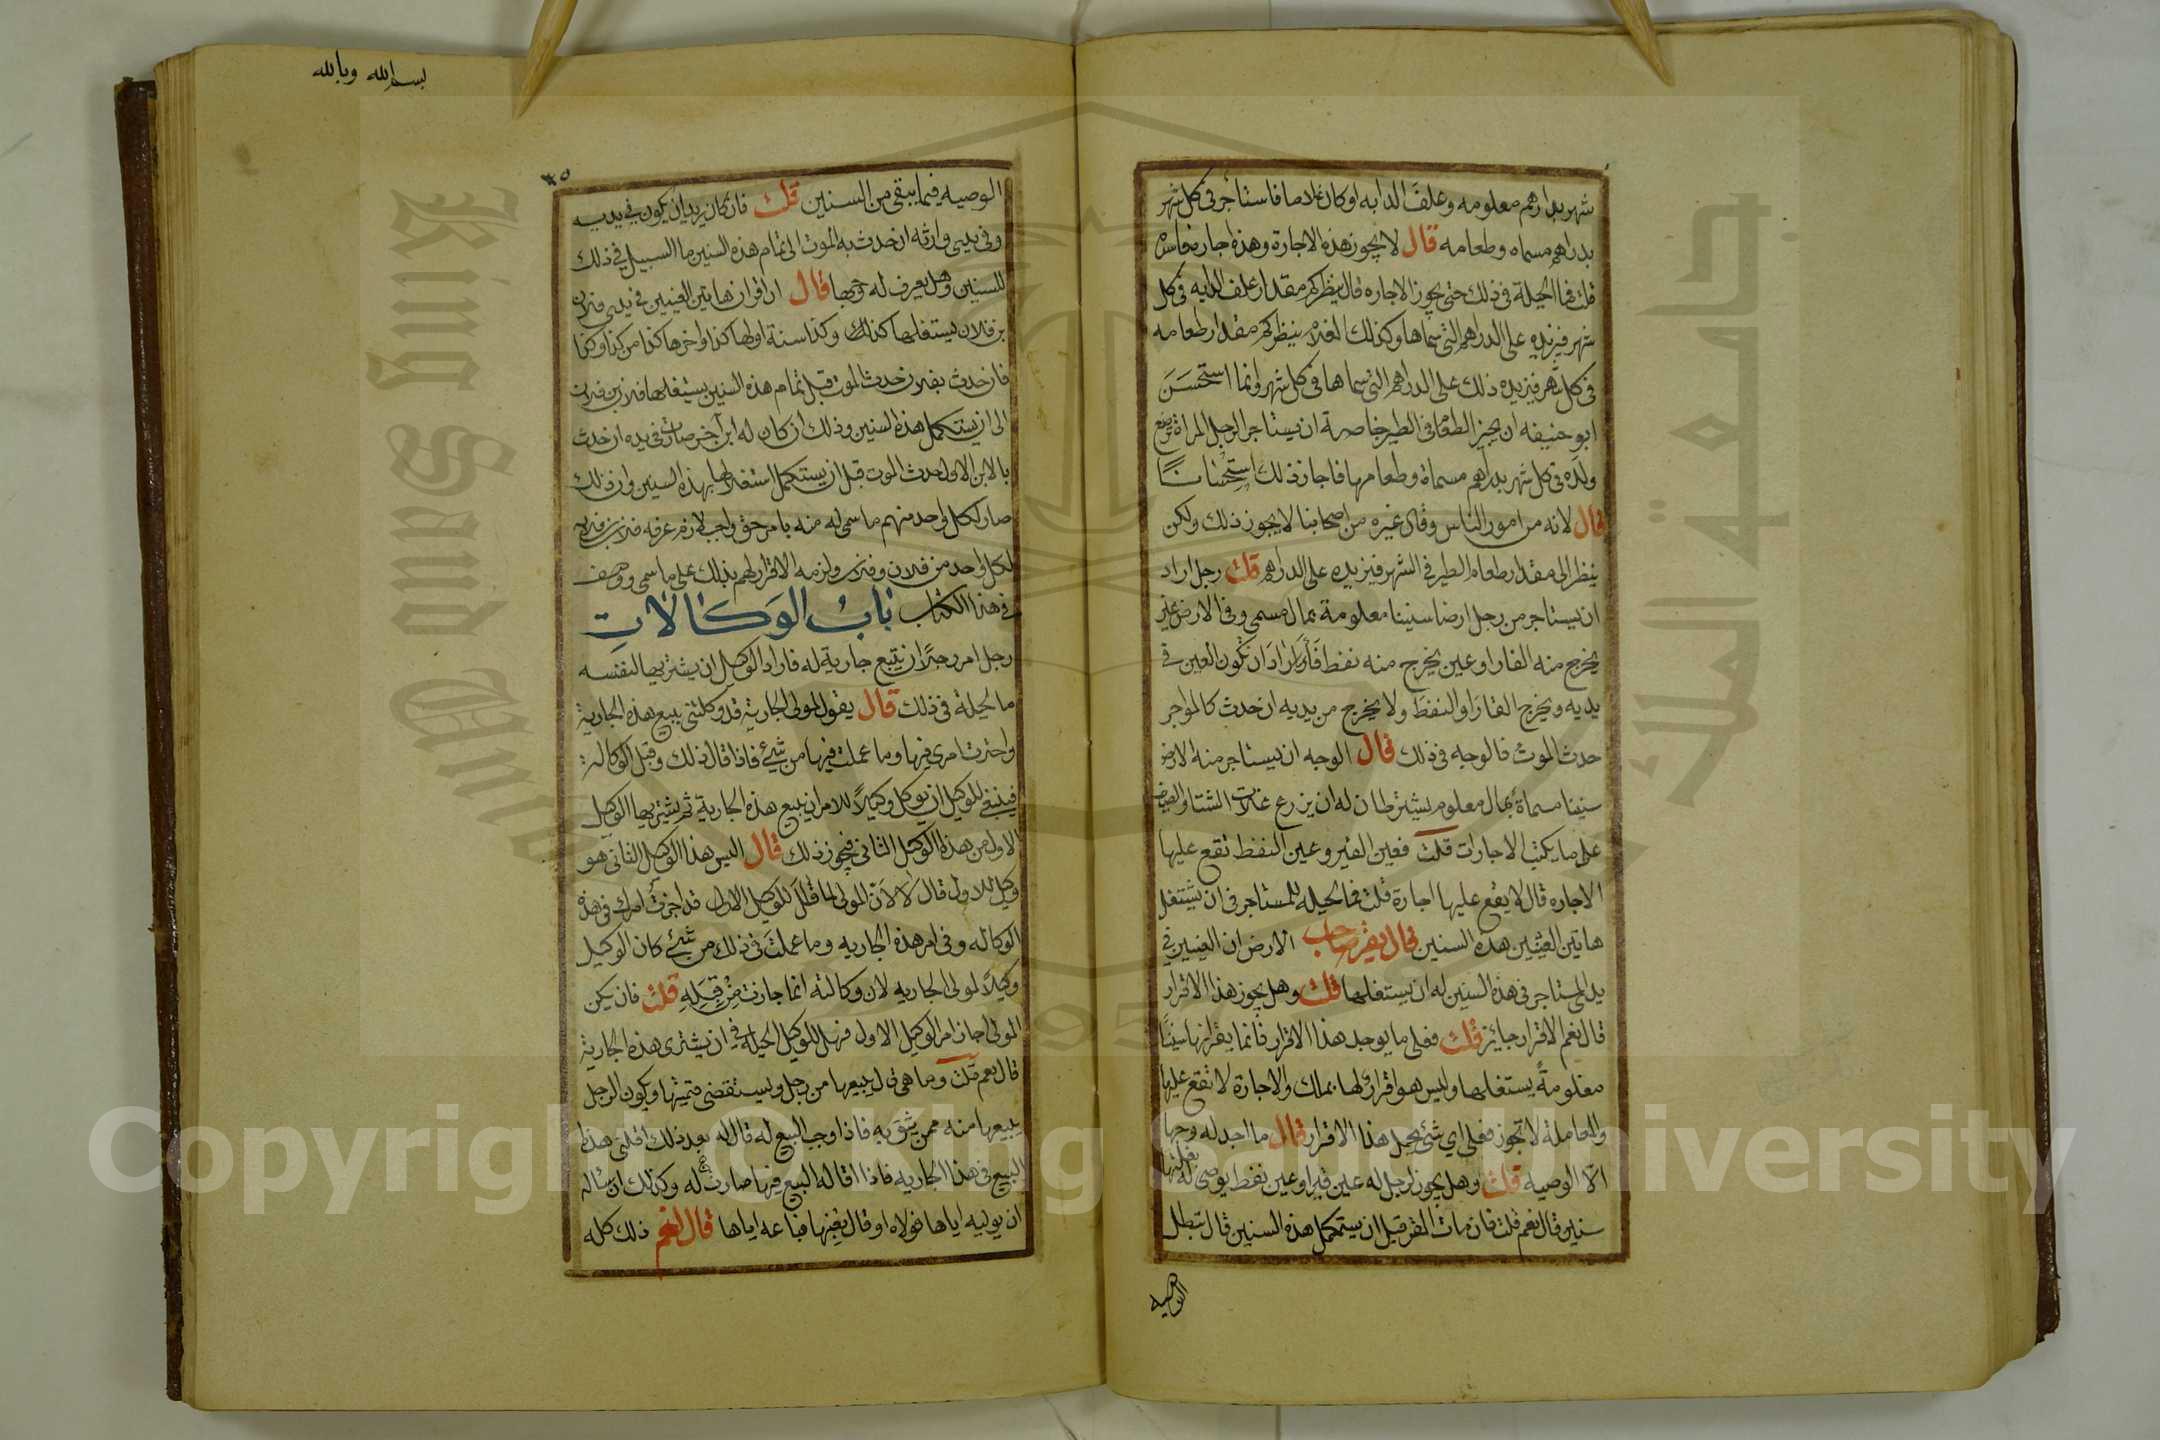 شهر بدراهم معلومه وعلف الدابه او كان غلاما فاستاجر في كل شهر
بدراهم مسماه وطعامه قال لا يجوز هذه الاجارة وهذه اجاره فاسده
قلت فما الحيلة في ذلك حتى يجوز الاجاره قال ينظر كم مقدار علف الدابه في كل
شهر فيزيده على الدراهم التي سماها وكذلك الغلام ينظر كم مقدار طعامه
في كل شهر فيزيده ذلك على الدراهم التي سماها في كل شهر وانما استحسن
ابو حنيفه ان يجيز الطعام في الظير خاصة ان يستاجر الرجل المراة ترضع
ولده في كل شهر بدراهم مسماة وطعامها فاجاز ذلك استحسانا
قال لانه من امور الناس وقال غيره من اصحابنا لا يجوز ذلك ولكن
ينظر الى مقدار طعام الظير في الشهر فيزيده على الدراهم قلت رجل اراد
ان يستاجر من رجل ارضا سنينا معلومة بمال مسمى وفي الارض عين
يخرج منه القار او عين يخرج منه نفط فاراد ان تكون العين في
يديه ويخرج القار او النفط ولا يخرج من يديه ان حدث كالموجر
حدث الموت فالوجه في ذلك قال الوجه ان يستاجر منه الارض
سنينا مسماة بمال معلوم يشترط ان له ان يزرع غلات الشتا والصيف
على ما يكتب الاجارت قلت فعين القير وعين النفط تقع عليها
الاجاره قال لا يقع عليها اجارة قلت فما الحيله للمستاجر في ان يستغل
هاتين العينين هذه السنين قال يقر صاحب الارض ان العينين في
يد المستاجر في هذه السنين له ان يستغلها قلت وهل يجوز هذا الاقرار
قال نعم الاقرار جايز قلت فعلى ما يوجد هذا الاقرار فانما يقر انها سنينا
معلومة يستغلها وليس هو اقرار لها بملك والاجارة لا تقع عليها
والمعاملة لا تجوز فعلى اي شئ يحل هذا الاقرار قال ما اجد له وجها
الا الوصيه قلت وهل يجوز لرجل له عين قير او عين نفط يوصى له بغلتها
سنين قال نعم قلت فان مات المقر قبل ان يستكمل هذه السنين قال تبطل
الوصيه
بسم الله وبالله
الوصيه فيما يبقى من السنين قلت فان كان يريد ان يكون في يديه
وفي يدي وارثه ان حدث به الموت الى تمام هذه السنين ما السبيل في ذلك
للسنين وهل يعرف له وجها قال ان اقر ان هاتين العينين في يدي فلان
بن فلان يستغلها كذلك وكذا سنة اولها كذا واخرها كذا من كذا وكذا
فان حدث بفلان حدث الموت قبل تمام هذه السنين يستغلها فلان بن فلان
الى ان يستكمل هذه السنين وذلك ان كان له ابن آخر صارت في يده ان حدث
بالابن الاول حدث الموت قبل ان يستكمل استغلالها بهذه السنين وان ذلك
صار لكل واحد منهم ما سمى له منه بامر حق واجب لازم عرفه فلان بن فلان
لكل واحد من فلان وفلان ولزمه الاقرار لهم بذلك على ما سمى ووصف
في هذا الكتاب باب الوكالات
رجل امر رجلا ان يبيع جارية له فاراد الوكيل ان يشتريها لنفسه
ما الحيلة في ذلك قال يقول لمولى الجارية قد وكلتني ببيع هذه الجارية
واجزت امري فيها وما عملت فيها من شئ فاذا قال ذلك وقبل الوكالة
فينبغي للوكيل ان يوكل وكيلا للامر ان يبيع هذه الجارية ثم يشتريها الوكيل
الاول من هذا الوكيل الثاني فيجوز ذلك قال اليس هذا الوكيل الثاني هو
وكيل للاول قال لا لان المولى لما قال للوكيل الاول قد اجزت امرك في هذه
الوكاله وفي امر هذه الجاريه وما عملت في ذلك من شئ كان الوكيل
وكيلا لمولى الجاريه لان وكالته انما جازت من قبله قلت فان يكن
المولى اجاز امر الوكيل الاول فهل للوكيل الحيلة في ان يشتري هذه الجارية
قال نعم قلت وما هي قال يبيعها من رجل ويستقضى قيمتها ويكون الرجل
يبيعها منه ممن يثق به فاذا وجب البيع له قال له بعد ذلك اقلني هذا
البيع في هذا الجاريه فاذا اقاله البيع فيها صارت له وكذلك ان ساله
ان يوليه اياها فولاه او قال بعنيها فباعه اياها قال نعم ذلك كله